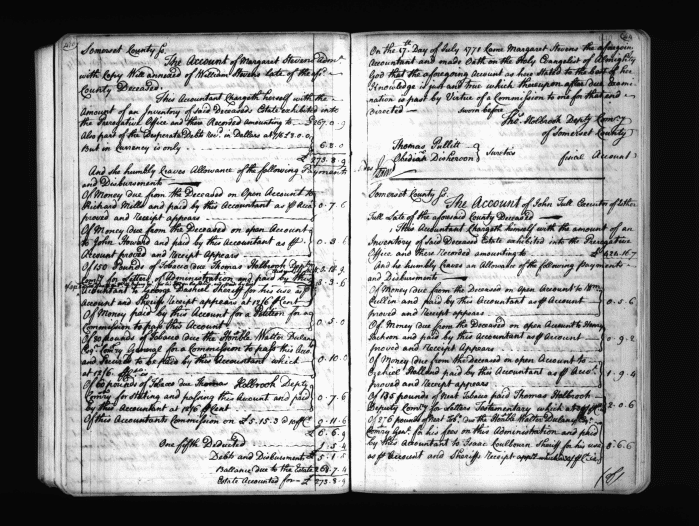 Somerset County Ss.
The Account of Margaret Stevens Adm.x
with Copy Will annexed of William Stevens Late of the af.sd
County Deceased
This Accountant Chargeth herself with the
Amount of an Inventory of said Deceased Estate exhibited into
the Prerogative Office and there Recorded amounting to £267.0.9
Also part of the Desperate Debts Rec.d in Dollars at 7/6
But in Currency is only 6.8.0
£273.8.9
And she humbly Craves Allowance of the following Payments
and Disbursements
Of Money due from the Deceased on Open Account to
Richard Mills and paid by this Accountant as p Acco.t
proved and Receipt appears 0.7.6
Of Money due from the Deceased on open Account
to John Howard and paid by this Accountant as p
Account proved and Receipt Appears 0.3.6
Of 150 Pounds of Tobacco due Thomas Holbrook Dep.ty
Com.ry for Letters of Administration and paid by this
Accountant to George Dashiel Sheriff for his use as p
account and Sheriffs Receipt appears at 12/6 p Cent
Of Money paid by this Account for a Petition for a
Commission to pass this Account 0.5.0
Of 80 pounds of Tobacco due the Honble Walter Dulany
Esq.r Com.ry General for a Commission to pass this Acco.t
and Proved to be paid by this Accountant which
at 12/6 0.10.0
Of 60 pounds of Tobacco due Thomas Holbrook Dep.ty
Com.ry for stating and passing this Account and paid
by this Accountant at 12/6 p Cent 0.7.6
Of this Accountants Commission on £5.15.3 @ 10 p C.t 0.11.6
£6.6.9
One fifth Deducted 1.5.4
Debts and Disbursements £5.1.5
Ballance due to the Estate 268.7.4
Estate Accounted for £273.8.9
On the 17.th Day of July 1771 Came Margaret Stevens the aforegoing
Accountant and made Oath on the Holy Evangelist of Almighty
God that the aforegoing Account as here Stated to the best of her
Knowledge is just and true which thereupon after due Exami-
nation is past by Virtue of a Commission to me for that end
Directed sworn before
Tho.s Holbrook Dep.ty Com.ry
of Somerset County
Thomas Pullett
Obediah Disheroon Sureties
final Account
Somerset County Ss.
The Account of John Tull Executor of
Tull Late of the aforesaid County Deceased
This Accountant Chargeth himself with the amount of an
Inventory of Said Deceased Estate exhibited into the Prerogative
Office and there Recorded amounting to £422.16.7
And he humbly Craves an Allowance of the following Payments
and Disbursements
Of Money due from the Deceased on Open Account to W.m
Cullin and paid by this Accountant as p Account
proved and Receipt appears 0.5.6
Of Money due from the Deceased on open Account to Henry
Jackson and paid by this Accountant as p Account
proved and Receipt Appears 0.9.2
Of Money due from the Deceased on open Account to
Ezekiel Holland paid by this Accountant as p Acco.t
proved and Receipt appears 1.9.4
Of 136 pounds of Neat Tobacco paid Thomas Holbrook
Deputy Com.ry for Letters Testamentary which at 2.0.6
Of 276 pounds of Neat Tob.o due the Honble Walter Dulany Esq.r
Com.ry Gen.l for his fees on this Administration and paid
by this Accountant to Isaac Coulbourn Sheriff for his use
as p Account and Sheriffs Receipt app.rs 3.6.6